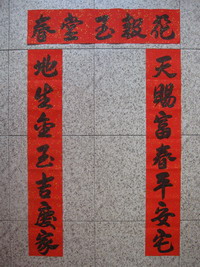 花開玉堂春
天賜富春平安宅
地生金玉吉慶家